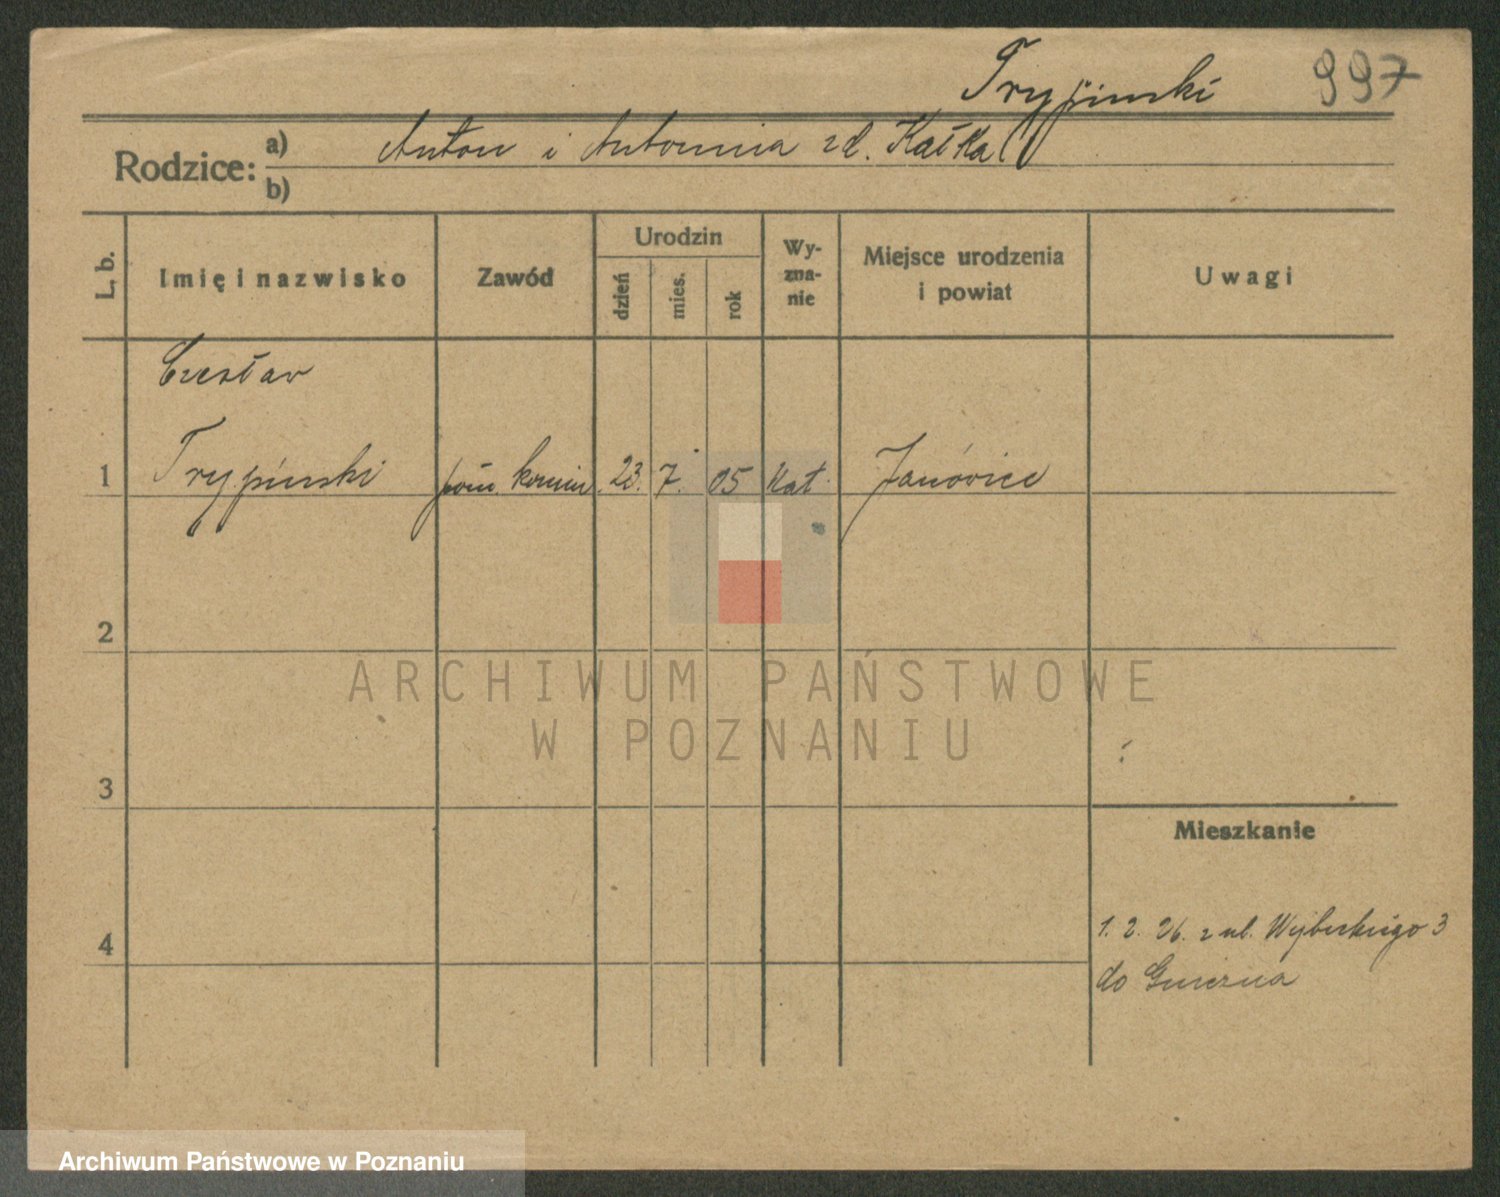 Trypinski 997
Rodzice: a) Anton i Antonina zd. Kałka
b)
L. b. Imię i nazwisko Zawód Urodzin dzień mies. rok Wyznanie Miejsce urodzenia i powiat Uwagi
Czesław
1 Trypiński pom. komin. 23. 7. 05 Kat. Janówice
2
ARCHIWUM PAŃSTWOWE
W POZNANIU
3
Mieszkanie
4 1. 2. 26. z ul. 3
do Gniezna
Archiwum Państwowe w Poznaniu